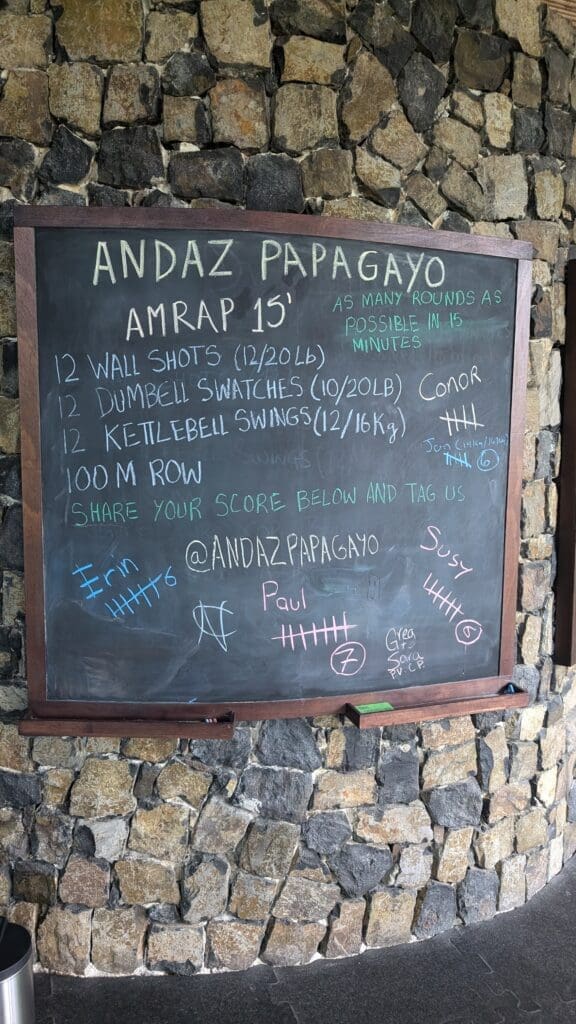 ANDAZ PAPAGAYO
AMRAP 15'
AS MANY ROUNDS AS
POSSIBLE IN 15
MINUTES
12 WALL SHOTS (12/20Lb)
12 DUMBELL SWATCHES (10/20LB)
12 KETTLEBELL SWINGS (12/16Kg)
100 M ROW
SHARE YOUR SCORE BELOW AND TAG US
@ANDAZPAPAGAYO
Conor
6
Susy
6
Erin
6
Paul
7
Sara